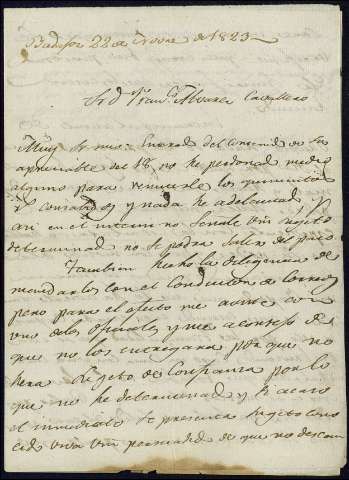 Badajoz 22 de Novre de 1823
Sr. D. Franco Alvarez Caballero
Muy Sr. mio: Enterado del contenido de su
apreciable del 18 no he perdonado medio
alguno para remitirle los
y nada he adelantado y
asi en el interin no Señale Vm sugeto
determinado no se podra salir del paso
Tambien hecho la diligencia de
mandarlos con el conductor de Correos
pero para el efecto me aviste con
uno de los oficiales y me aconsejo de
que no los entregara por que no
hera sugeto de Confianza por lo
que no he determinado y si acaso
el inmediato Se presenta sugeto cono
cido viva Vm persuadido de que no descan